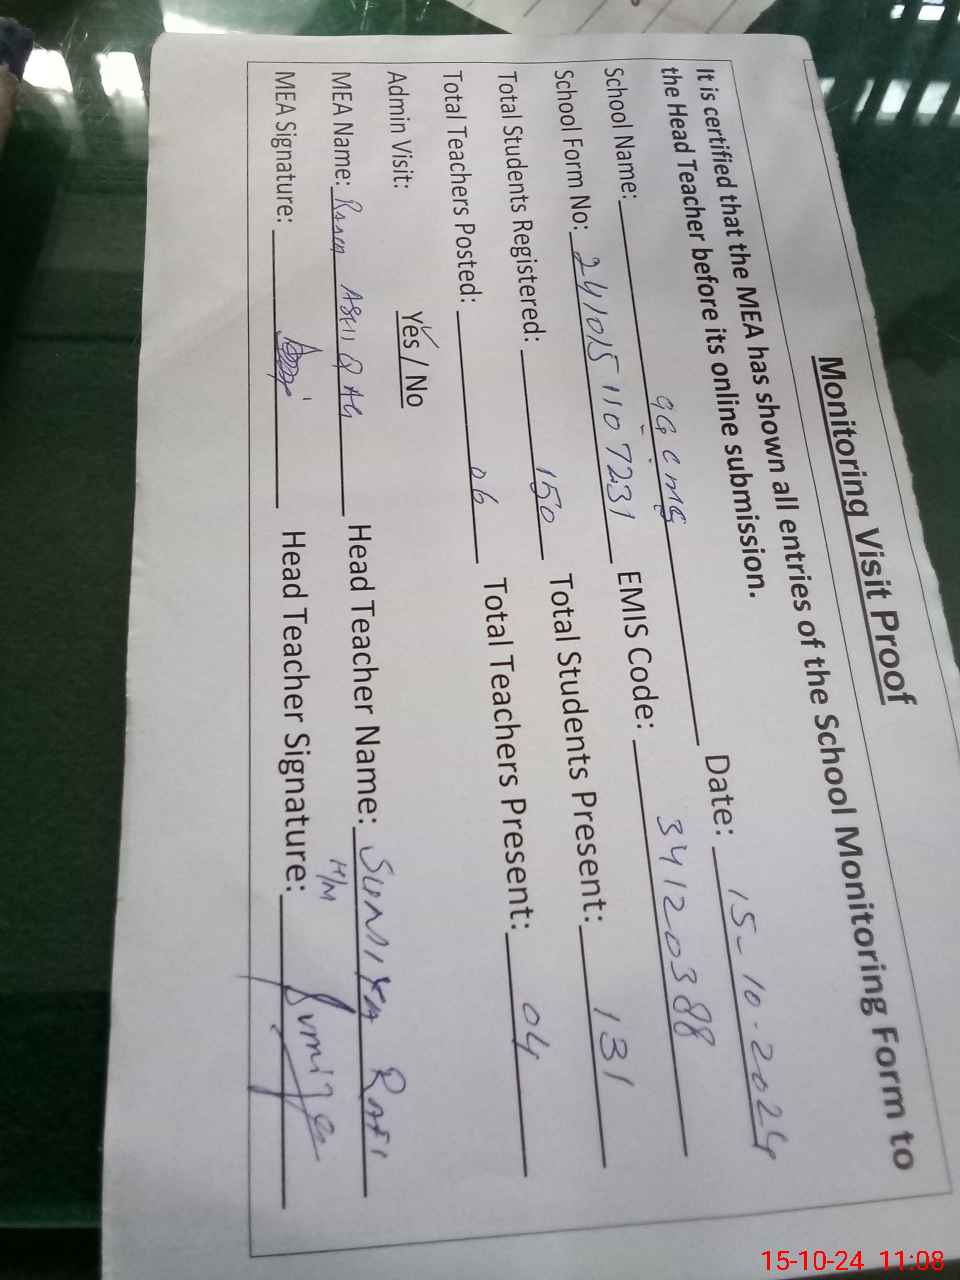 Monitoring Visit Proof
It is certified that the MEA has shown all entries of the School Monitoring Form to
the Head Teacher before its online submission.
School Name: GGCMS Date: 15-10-2024
School Form No: 2410151107231 EMIS Code: 34120388
Total Students Registered: 150 Total Students Present: 131
Total Teachers Posted: 06 Total Teachers Present: 04
Admin Visit: Yes / No
MEA Name: Head Teacher Name: SUMIYA RAFI
H/M
MEA Signature: Head Teacher Signature: Sumiya
15-10-24 11:08